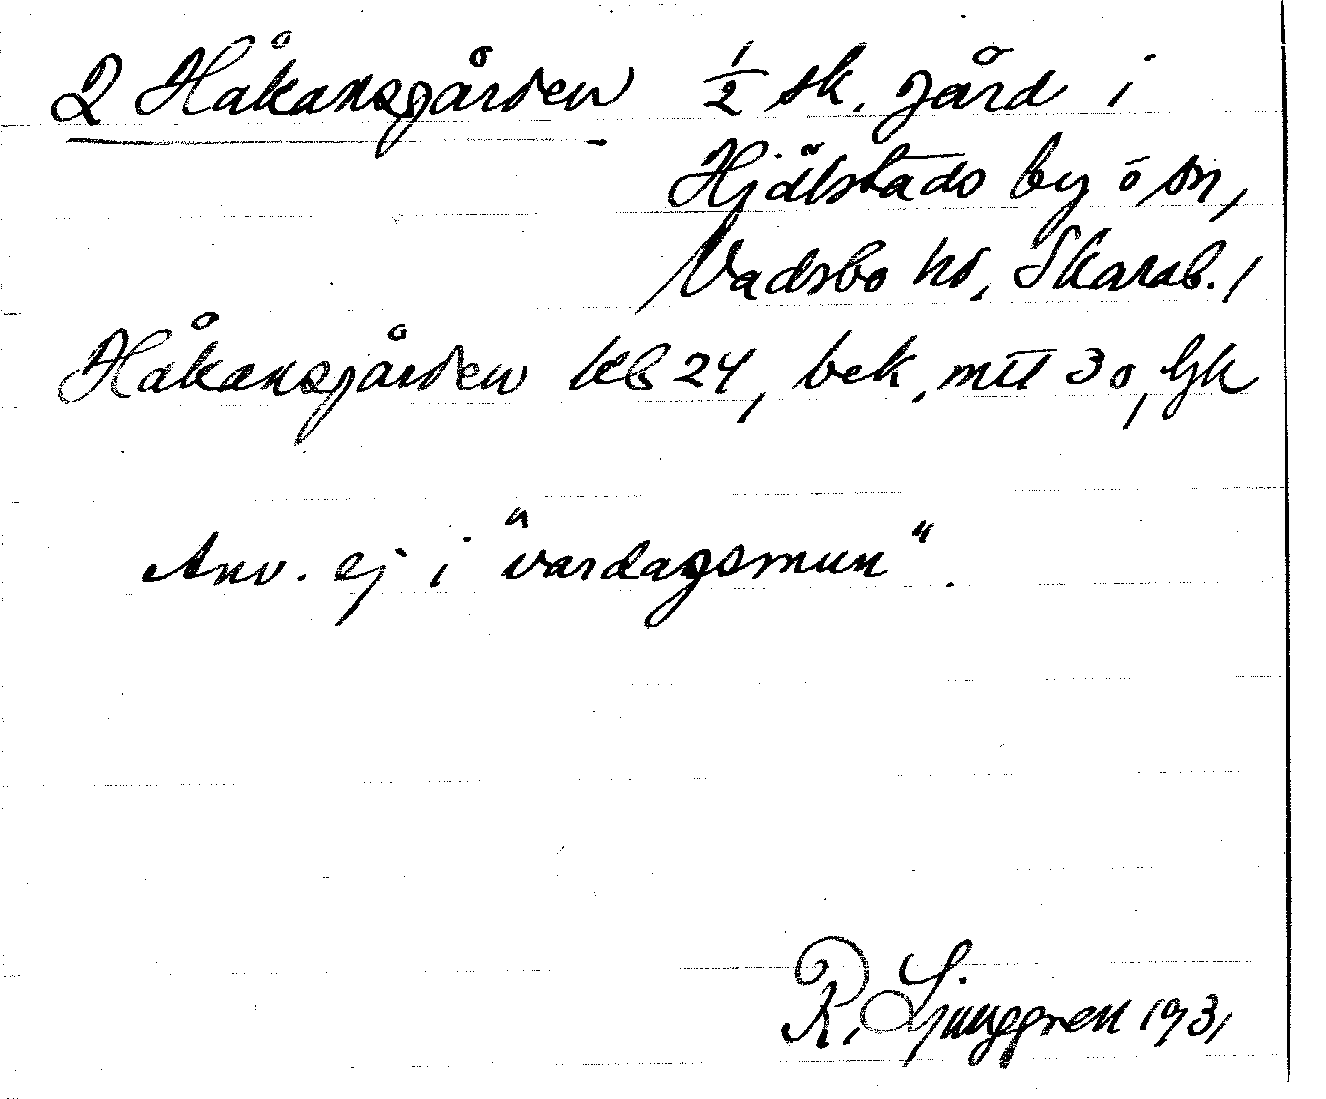 2 Håkansgården 1/2 sk. gård i
Hjälstads by o sn,
Vadsbo hd, Skarab. /
Håkansgården kB 24, bek, mtl 30, Gk
Anv. ej i "vardagsmun".
R. Ljunggren 1931